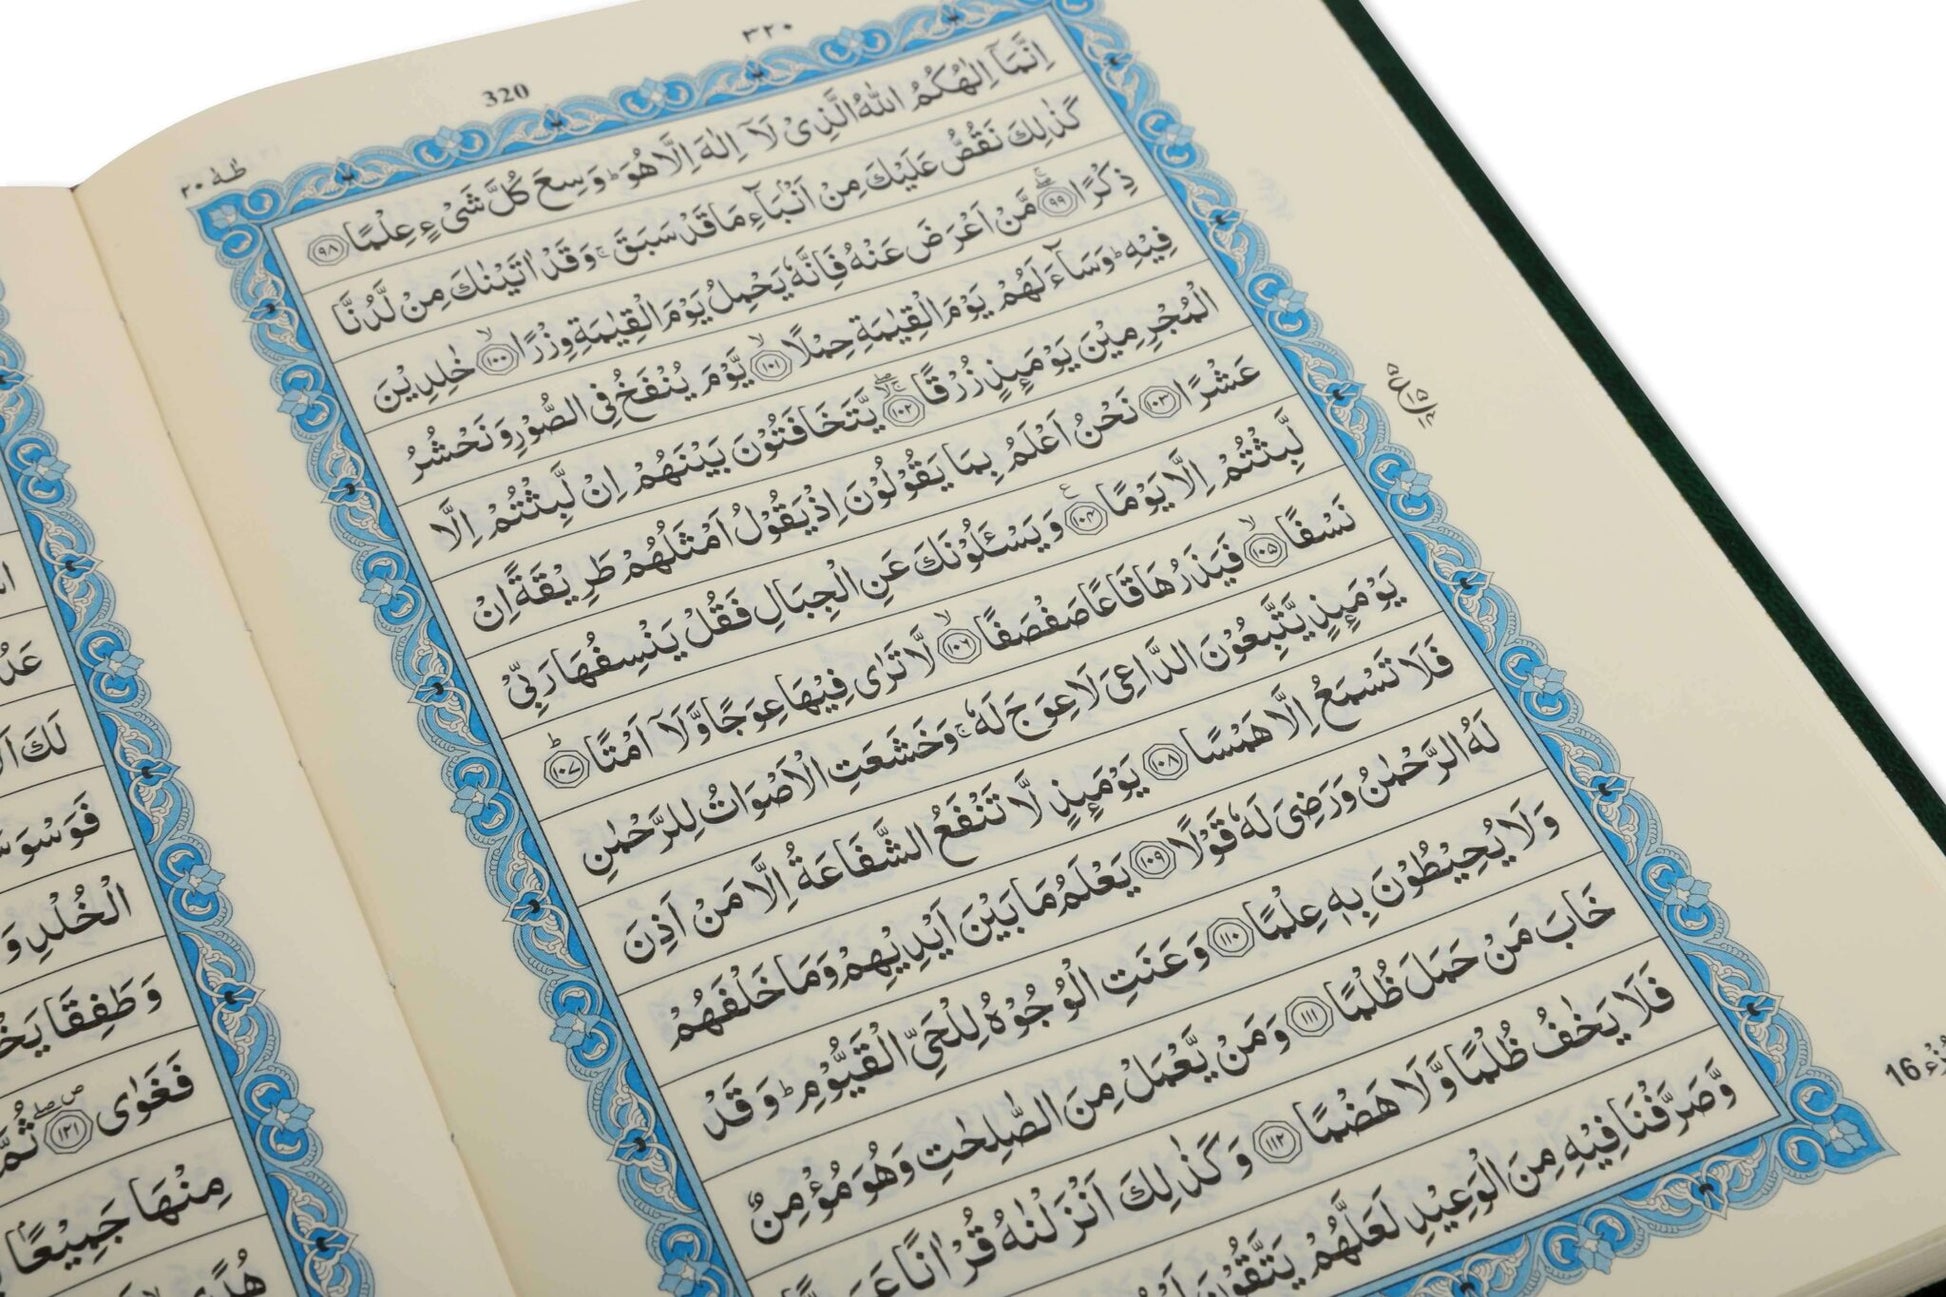 ٣٢٠
320
طٰهٰ ٢٠
اِنَّمَآ اِلٰهُكُمُ اللّٰهُ الَّذِىْ لَآ اِلٰهَ اِلَّا هُوَ ؕ وَسِعَ كُلَّ شَىْءٍ عِلْمًا ﴿٩٨﴾
كَذٰلِكَ نَقُصُّ عَلَيْكَ مِنْ اَنْۢبَآءِ مَا قَدْ سَبَقَ ۚ وَقَدْ اٰتَيْنٰكَ مِنْ لَّدُنَّا
ذِكْرًا ﴿٩٩﴾ مَّنْ اَعْرَضَ عَنْهُ فَاِنَّهٗ يَحْمِلُ يَوْمَ الْقِيٰمَةِ وِزْرًا ﴿١٠٠﴾ خٰلِدِيْنَ
فِيْهِ ؕ وَسَآءَ لَهُمْ يَوْمَ الْقِيٰمَةِ حِمْلًا ﴿١٠١﴾ يَّوْمَ يُنْفَخُ فِى الصُّوْرِ وَنَحْشُرُ
الْمُجْرِمِيْنَ يَوْمَٮِٕذٍ زُرْقًا ﴿١٠٢﴾ يَّتَخَافَتُوْنَ بَيْنَهُمْ اِنْ لَّبِثْتُمْ اِلَّا
عَشْرًا ﴿١٠٣﴾ نَحْنُ اَعْلَمُ بِمَا يَقُوْلُوْنَ اِذْ يَقُوْلُ اَمْثَلُهُمْ طَرِيْقَةً اِنْ
لَّبِثْتُمْ اِلَّا يَوْمًا ﴿١٠٤﴾ وَيَسْـَٔلُوْنَكَ عَنِ الْجِبَالِ فَقُلْ يَنْسِفُهَا رَبِّىْ
نَسْفًا ﴿١٠٥﴾ فَيَذَرُهَا قَاعًا صَفْصَفًا ﴿١٠٦﴾ لَّا تَرٰى فِيْهَا عِوَجًا وَّلَآ اَمْتًا ﴿١٠٧﴾
يَوْمَٮِٕذٍ يَّتَّبِعُوْنَ الدَّاعِىَ لَا عِوَجَ لَهٗ ۚ وَخَشَعَتِ الْاَصْوَاتُ لِلرَّحْمٰنِ
فَلَا تَسْمَعُ اِلَّا هَمْسًا ﴿١٠٨﴾ يَوْمَٮِٕذٍ لَّا تَنْفَعُ الشَّفَاعَةُ اِلَّا مَنْ اَذِنَ
لَهُ الرَّحْمٰنُ وَرَضِىَ لَهٗ قَوْلًا ﴿١٠٩﴾ يَعْلَمُ مَا بَيْنَ اَيْدِيْهِمْ وَمَا خَلْفَهُمْ
وَلَا يُحِيْطُوْنَ بِهٖ عِلْمًا ﴿١١٠﴾ وَعَنَتِ الْوُجُوْهُ لِلْحَىِّ الْقَيُّوْمِ ؕ وَقَدْ
خَابَ مَنْ حَمَلَ ظُلْمًا ﴿١١١﴾ وَمَنْ يَّعْمَلْ مِنَ الصّٰلِحٰتِ وَهُوَ مُؤْمِنٌ
فَلَا يَخٰفُ ظُلْمًا وَّلَا هَضْمًا ﴿١١٢﴾ وَكَذٰلِكَ اَنْزَلْنٰهُ قُرْاٰنًا
وَّصَرَّفْنَا فِيْهِ مِنَ الْوَعِيْدِ لَعَلَّهُمْ يَتَّقُوْنَ
16
لَكَ
فَوَسْوَسَ
الْخُلْدِ وَ
وَطَفِقَا
فَغَوٰى ﴿١٢١﴾ ثُمَّ
مِنْهَا جَمِيْعًا
هُدًى